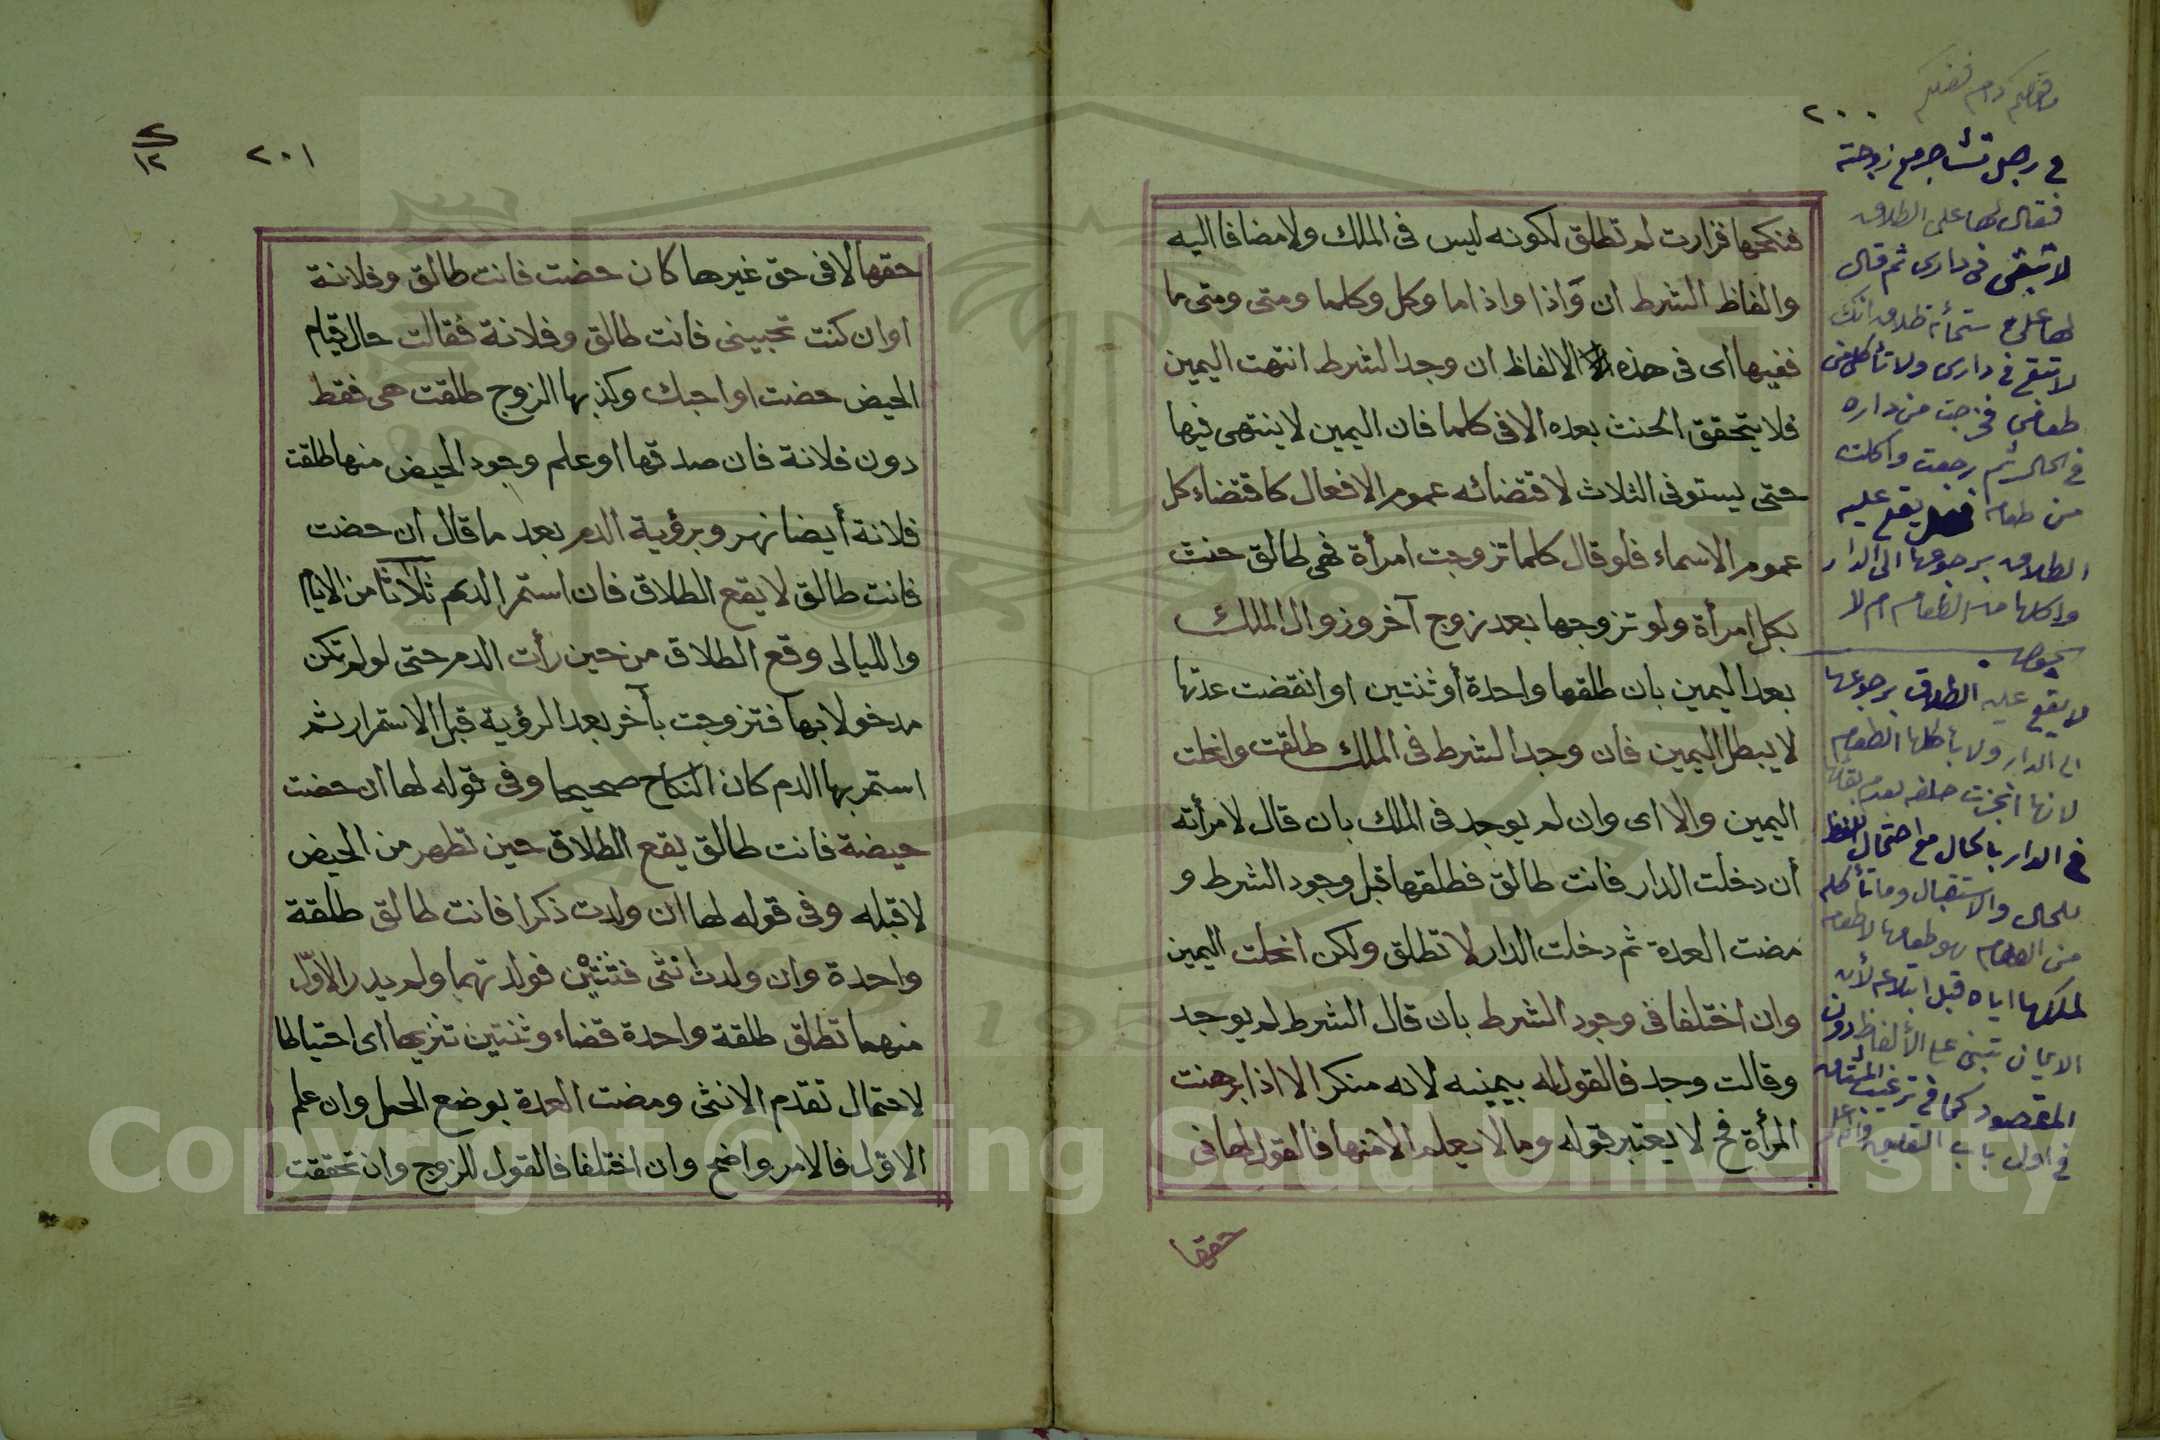 ٢٠٠
فنكحها فزارت لم تطلق لكونه ليس فى الملك ولا مضافا اليه
والفاظ الشرط ان وَاذا واذاما وكل وكلما ومتى ومتى ما
ففيها اى فى هذه الالفاظ ان وجد الشرط انتهت اليمين
فلا يتحقق الحنث بعده الا فى كلما فان اليمين لا ينتهى فيها
حتى يستوفى الثلاث لاقتضائه عموم الافعال كاقتضاء كل
عموم الاسماء فلو قال كلما تزوجت امرأة فهى طالق حنث
بكل امرأة ولو تزوجها بعد زوج آخر وزوال الملك
بعد اليمين بان طلقها واحدة أو ثنتين او انقضت عدتها
لا يبطل اليمين فان وجد الشرط فى الملك طلقت وانحلت
اليمين والا اى وان لم يوجد فى الملك بان قال لامرأته
أن دخلت الدار فانت طالق فطلقها قبل وجود الشرط و
مضت العدة ثم دخلت الدار لا تطلق ولكن انحلت اليمين
وان اختلفا فى وجود الشرط بان قال الشرط لم يوجد
وقالت وجد فالقول له بيمينه لانه منكر الا اذا برهنت
المرأة فح لا يعتبر قوله وما لا يعلم الا منها فالقول لها فى
حقها
ما قولكم دام فضلكم
في رجل تشاجر مع زوجته
فقال لها على الطلاق
لا تبقى فى دارى ثم قال
لها على ستمأة طلاق انك
لا تبقى فى دارى ولا تأكلى من
طعامى فخرجت من داره
فى الحال ثم رجعت واكلت
من طعامه يقع عليه
الطلاق برجوعها الى الدار
واكلها من الطعام ام لا
لا يقع عليه الطلاق برجوعها
الى الدار ولا بأكلها الطعام
لانها انجزت حلفه بعدم بقائها
فى الدار بالحال مع احتمال اللفظ
للحال والاستقبال وما تأكله
من الطعام هو طعامها لا طعامه
لملكها اياه قبل ابتلاعه لأن
الايمان تبنى على الألفاظ دون
المقصود كما فى
فى اول باب التعليق
٢٠١
٢
١٢
حقها لا فى حق غيرها كان حضت فانت طالق وفلانة
او ان كنت تحبينى فانت طالق وفلانة فقالت حال قيام
الحيض حضت او احبك وكذبها الزوج طلقت هى فقط
دون فلانة فان صدقها او علم وجود الحيض منها طلقت
فلانة أيضا نهر وبرؤية الدم بعد ما قال ان حضت
فانت طالق لا يقع الطلاق فان استمر الدم ثلاثا من الايام
والليالى وقع الطلاق من حين رأت الدم حتى لو لم تكن
مدخولا بها فتزوجت بآخر بعد الرؤية قبل الاستمرار ثم
استمر بها الدم كان النكاح صحيحا وفى قوله لها ان حضت
حيضة فانت طالق يقع الطلاق حين تطهر من الحيض
لا قبله وفى قوله لها ان ولدت ذكرا فانت طالق طلقة
واحدة وان ولدت انثى فثنتين فولدتهما ولم يدر الاوّل
منهما تطلق طلقة واحدة قضاء وثنتين تنزيها اى احتياطا
لاحتمال تقدم الانثى ومضت العدة بوضع الحمل وان علم
الاوّل فالامر واضح وان اختلفا فالقول للزوج وان تحققت
Copyright © King Saud University
1957